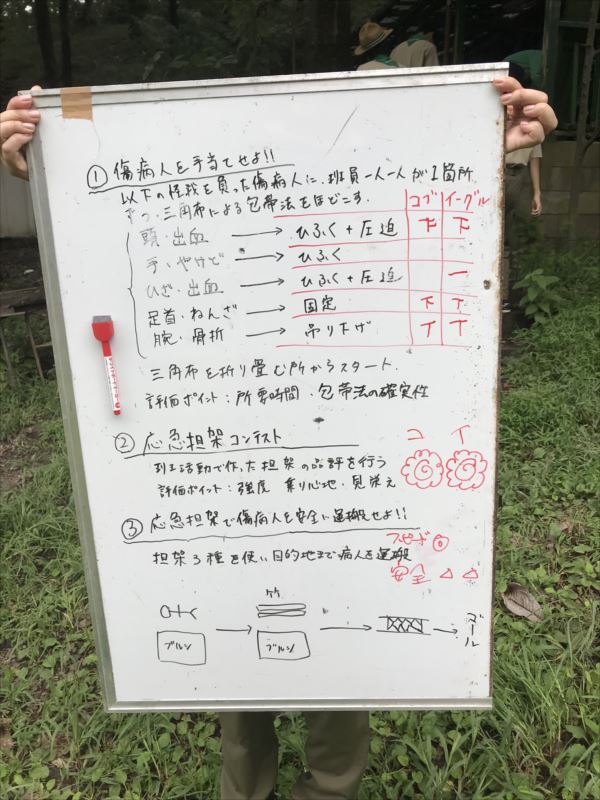 ① 傷病人を手当てせよ!!
以下の怪我を負った傷病人に、班員一人一人が1箇所
ずつ、三角布による包帯法をほどこす。
コブ イーグル
頭・出血 → ひふく+圧迫 下 下
手・やけど → ひふく
ひざ・出血 → ひふく+圧迫 一
足首・ねんざ → 固定 下 丅
腕・骨折 → 吊り下げ 丅 丅
三角布を折り畳む所からスタート.
評価ポイント:所要時間・包帯法の確実性
② 応急担架コンテスト
コ イ
班活動で作った担架の品評を行う
評価ポイント:強度 乗り心地・見栄え
③ 応急担架で傷病人を安全に運搬せよ!!
スピード ◎
担架3種を使い目的地まで病人を運搬
安全 △ △
竹
ブルシ → ブルシ → → ゴール